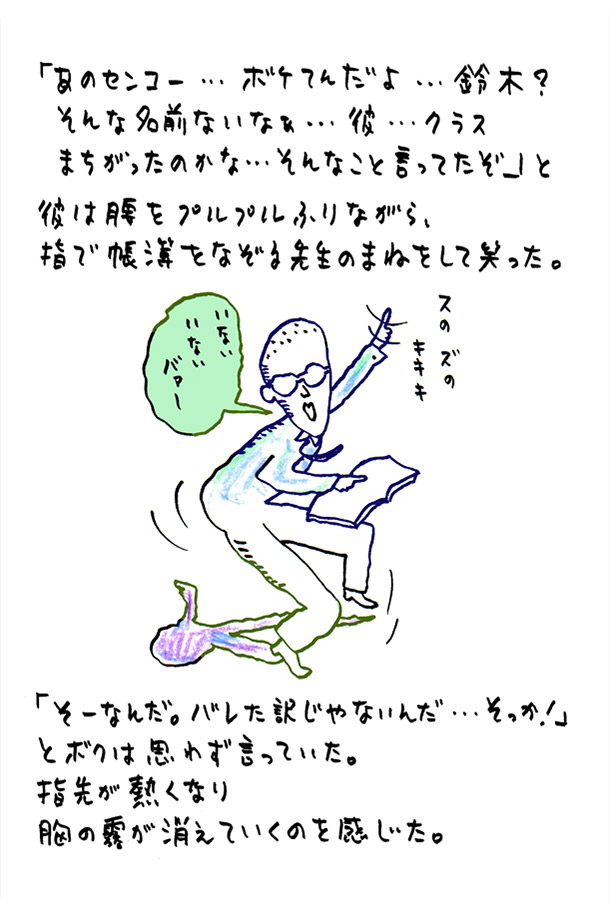 「あのセンコー…ボケてんだよ…鈴木?
そんな名前ないなぁ…彼…クラス
まちがったのかな…そんなこと言ってたぞ」と
彼は腰をプルプルふりながら、
指で帳簿をなぞる先生のまねをして笑った。
いない
いない
バァー
スの ズの
キキキ
「そーなんだ。バレた訳じゃないんだ…そっか!」
とボクは思わず言っていた。
指先が熱くなり
胸の霧が消えていくのを感じた。